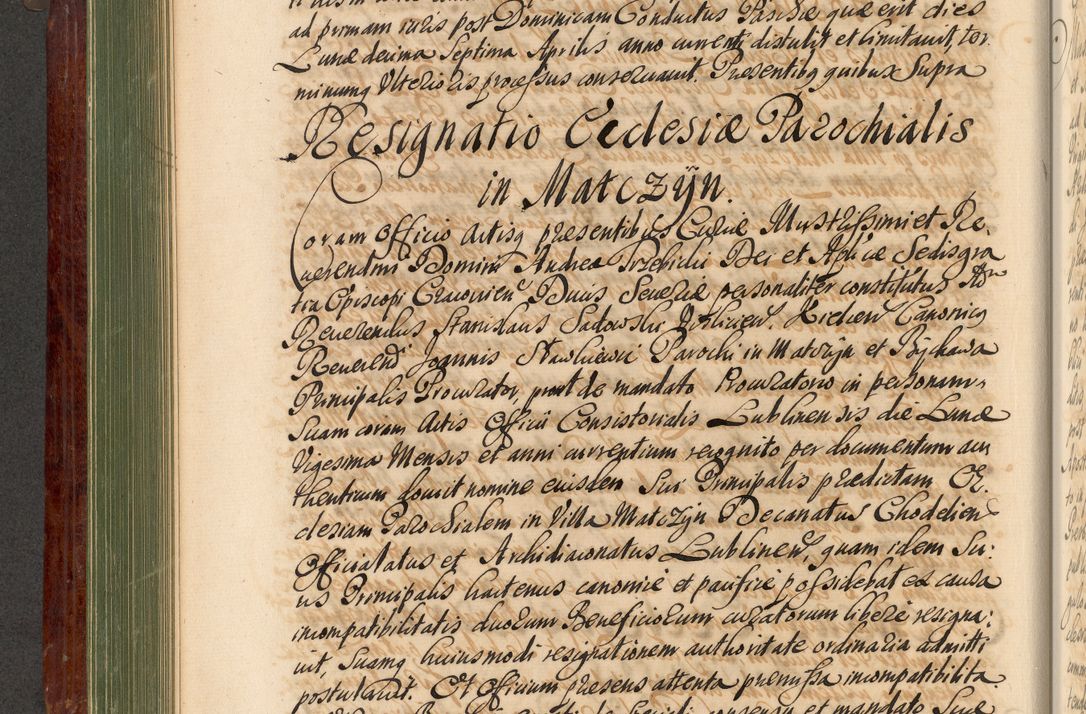 ad primam iuris post Dominicam Conductus Paschæ quæ erit dies
Lunæ decima Septima Aprilis anno currenti distulit et limitauit, ter
minumq Vlterioris processus conseruauit. Presentibq quibus Supra
Resignatio Ecclesiæ Parochialis
in Matczÿn.
Coram Officio Actisq presentibus Curiæ Illustrissimi et Re,
uerendmi Domini Andreæ Trzebicki Dei et Aplicæ Sedis gra
tia Episcopi Cracouien Ducis Seueriæ personaliter constitutus Ad
Reuerendus Stanislaus Sadowski Canonicq
Reuerendi Joannis Parochi in Matczÿn et Bÿchawa
Principalis Procurator, prout de mandato Procuratorio in personam
Suam coram Actis Officii Consistorialis Lublinensis die Lunæ
Vigesima Mensis et anni currentium recognito per documentum au
thenticum docuit nomine eiusdem Sui Principalis prædictam Ec,
clesiam Parochialem in Villa Matczÿn Decanatus Chodelien
Officialatus et Archidiaconatus Lublinen, quam idem Su:
us Principalis hactenus canonice et pacifice possidebat ex causa
incompatibilitatis duorum Beneficiorum curatorum libere resigna:
uit, Suamq huiusmodi resignationem authoritate ordinaria admitti
postulauit. Et Officium præsens attenta præmissa incompatibilita